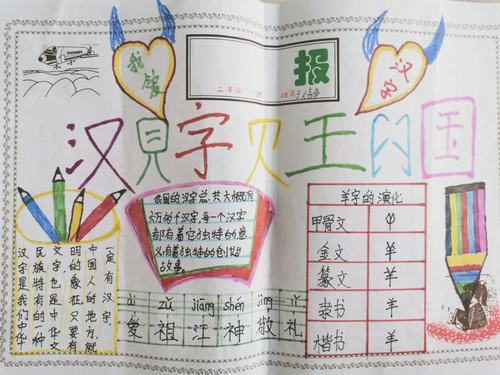 我爱
报
汉字
二年级
汉見字贝王闪国
我国的汉字总共大概有
六万千汉字,每一个汉字
都有着它独特的意
义,有着独特的创始
故事。
羊字的演化
甲骨文
金文 羊
篆文 羊
隶书 羊
楷书 羊
汉字是我们中华
民族特有的一种
文字也是中华文
明的象征.只要有
中国人的地方,就
一定有汉字.
ài zǔ jiāng shén jìng lǐ
爱 祖 江 神 敬 礼